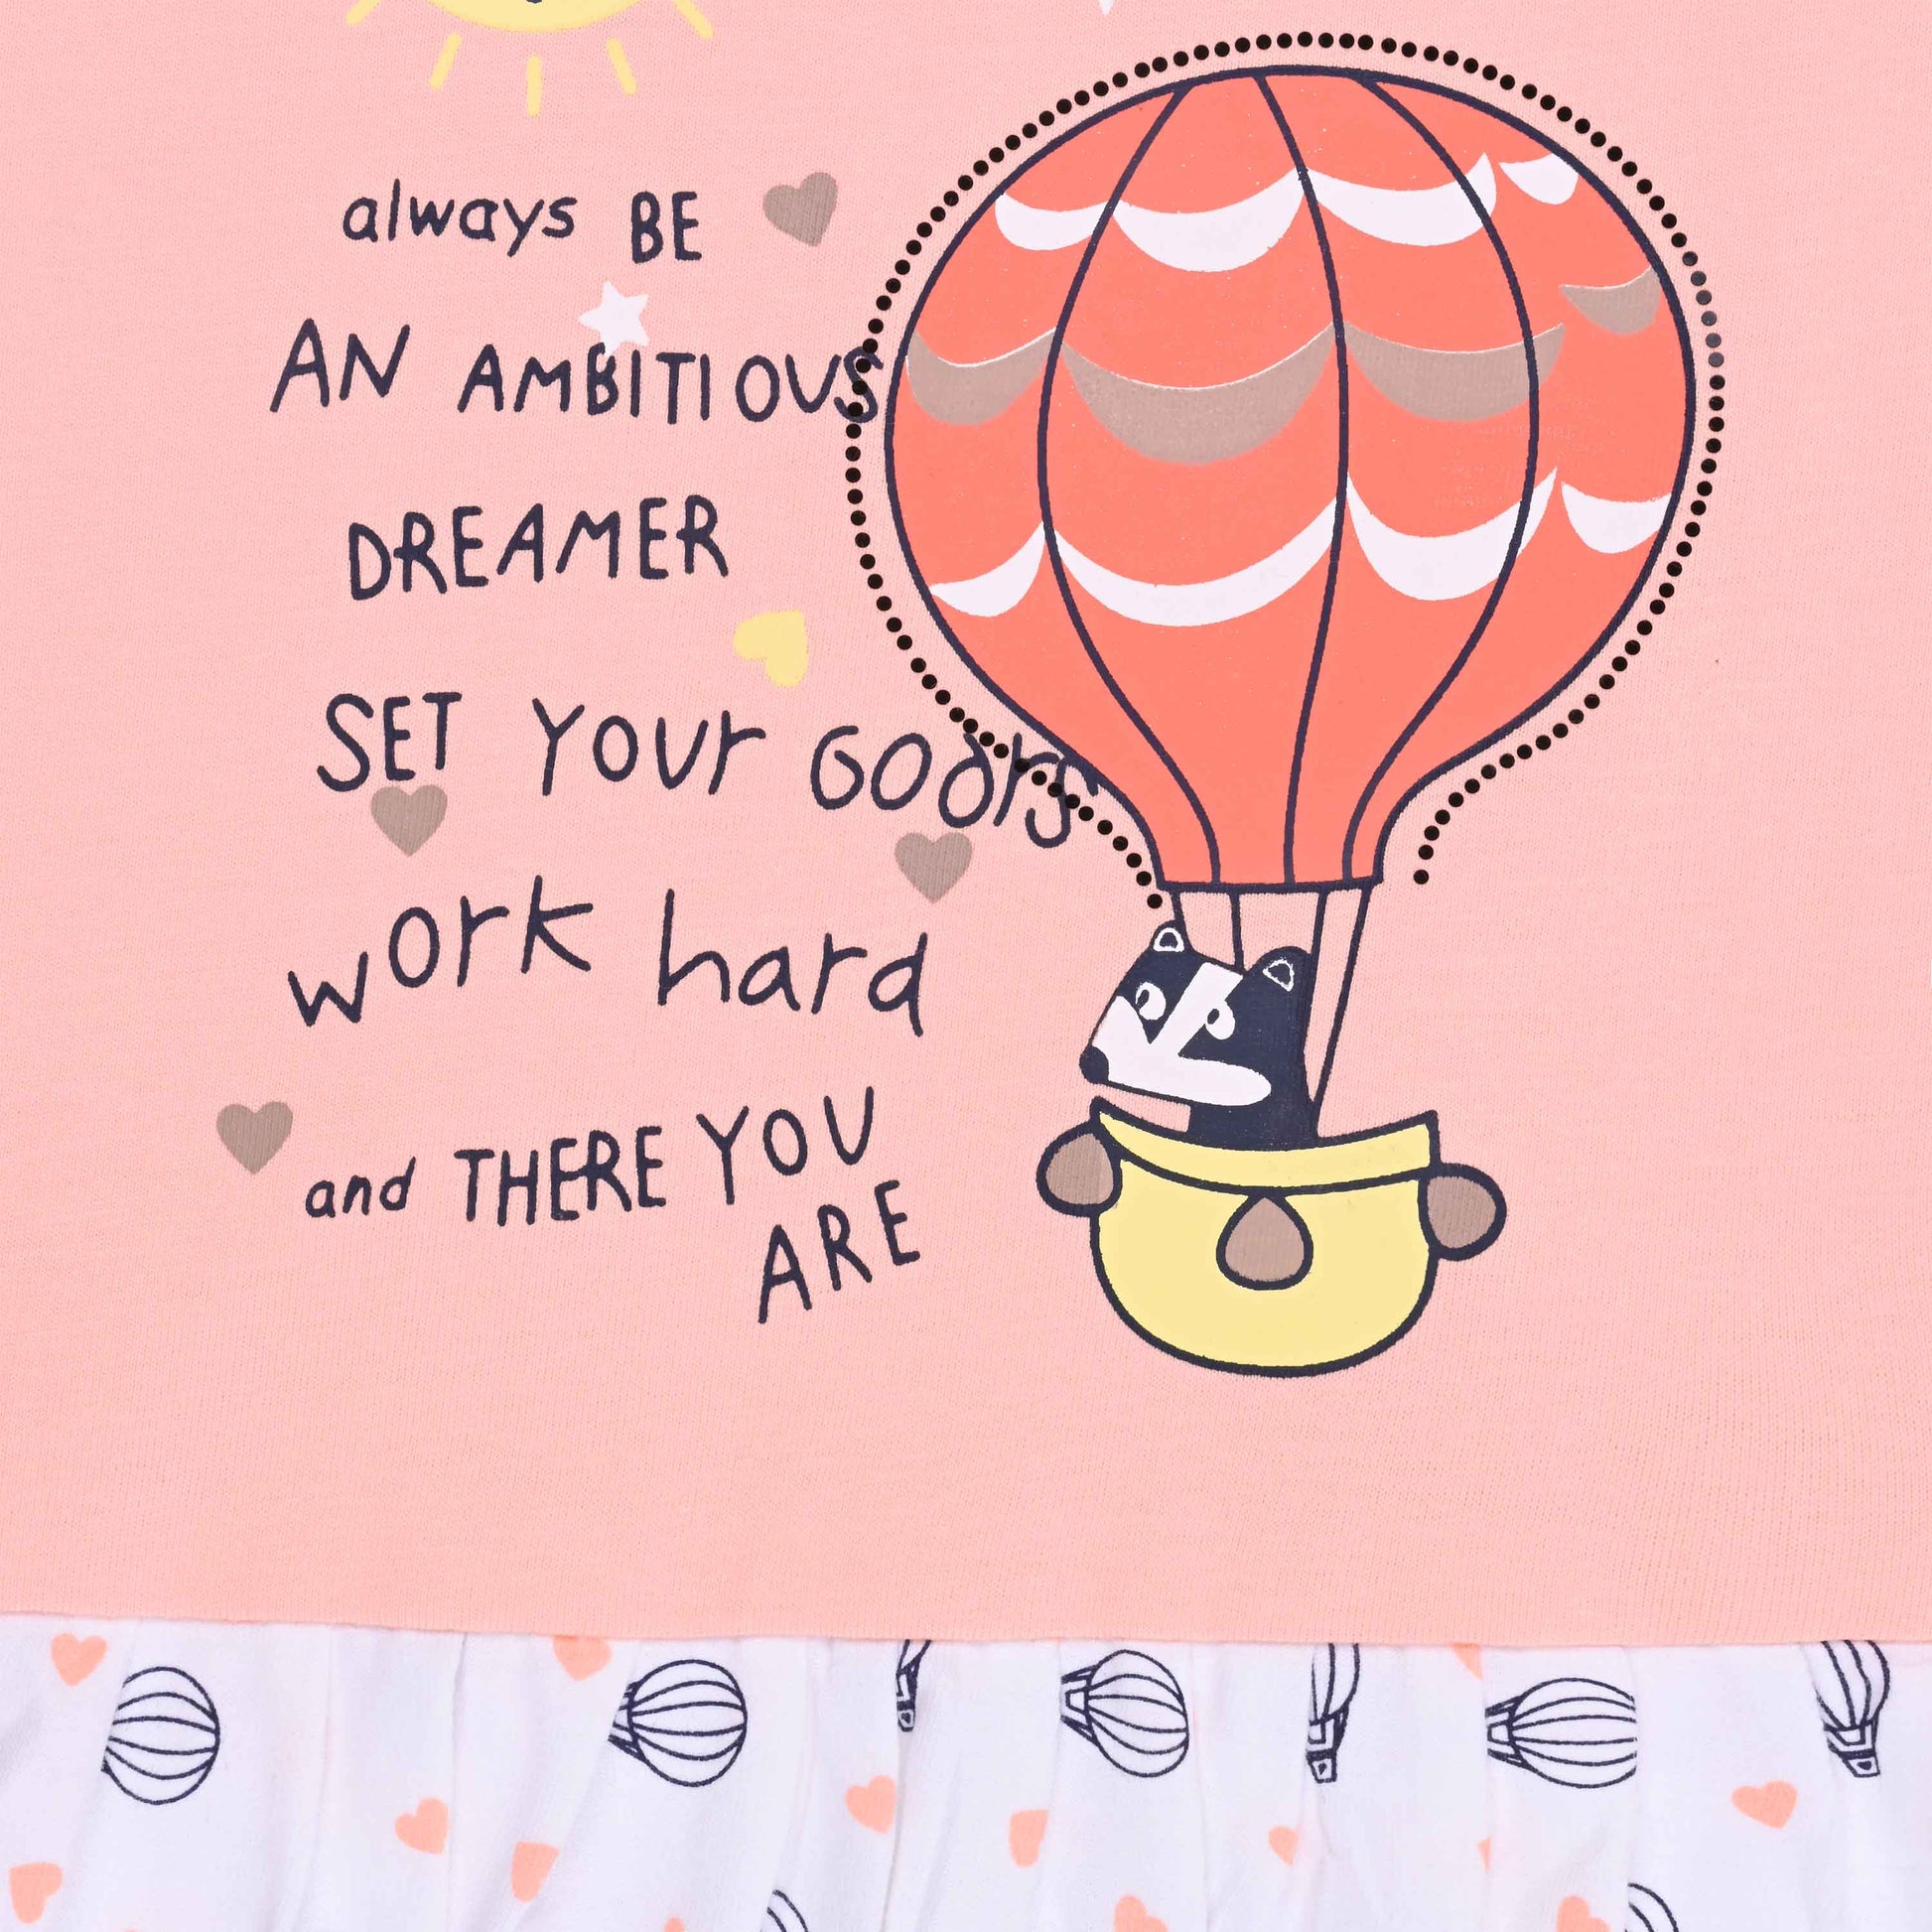 always BE
AN AMBITIOUS
DREAMER
SET YOUr GOals
work hard
and THERE YOU
ARE